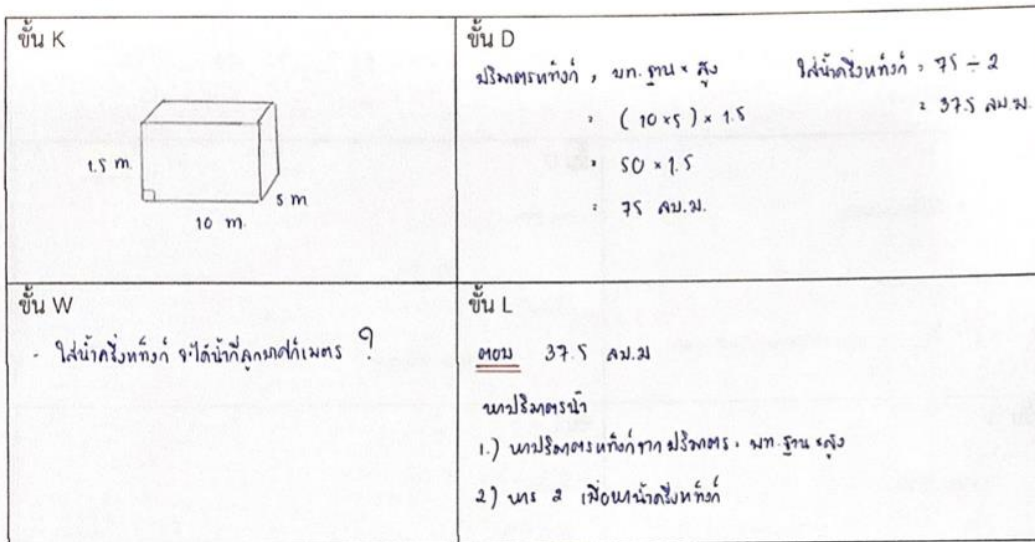 ขั้น K
1.5 m.
10 m.
5 m
ขั้น D
ปริมาตรแท็งก์ = พท. ฐาน × สูง
= (10 × 5) × 1.5
= 50 × 1.5
= 75 ลบ.ม.
ใส่น้ำครึ่งแท็งก์ = 75 ÷ 2
= 37.5 ลบ.ม.
ขั้น W
- ใส่น้ำครึ่งแท็งก์ จะได้น้ำกี่ลูกบาศก์เมตร ?
ขั้น L
ตอบ 37.5 ลบ.ม
หาปริมาตรน้ำ
1.) หาปริมาตรแท็งก์จาก ปริมาตร = พท. ฐาน × สูง
2) หาร 2 เพื่อหาน้ำครึ่งแท็งก์